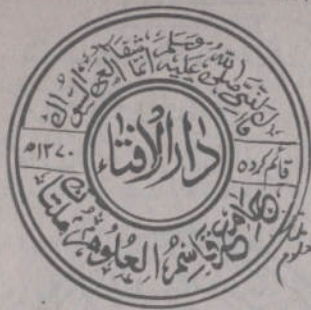 قال النبی صلی اللہ علیہ وسلم انما شفاء العی السوال
دارالافتاء
قائم کردہ ۱۳۷۰ھ
قاسم العلوم ملتان